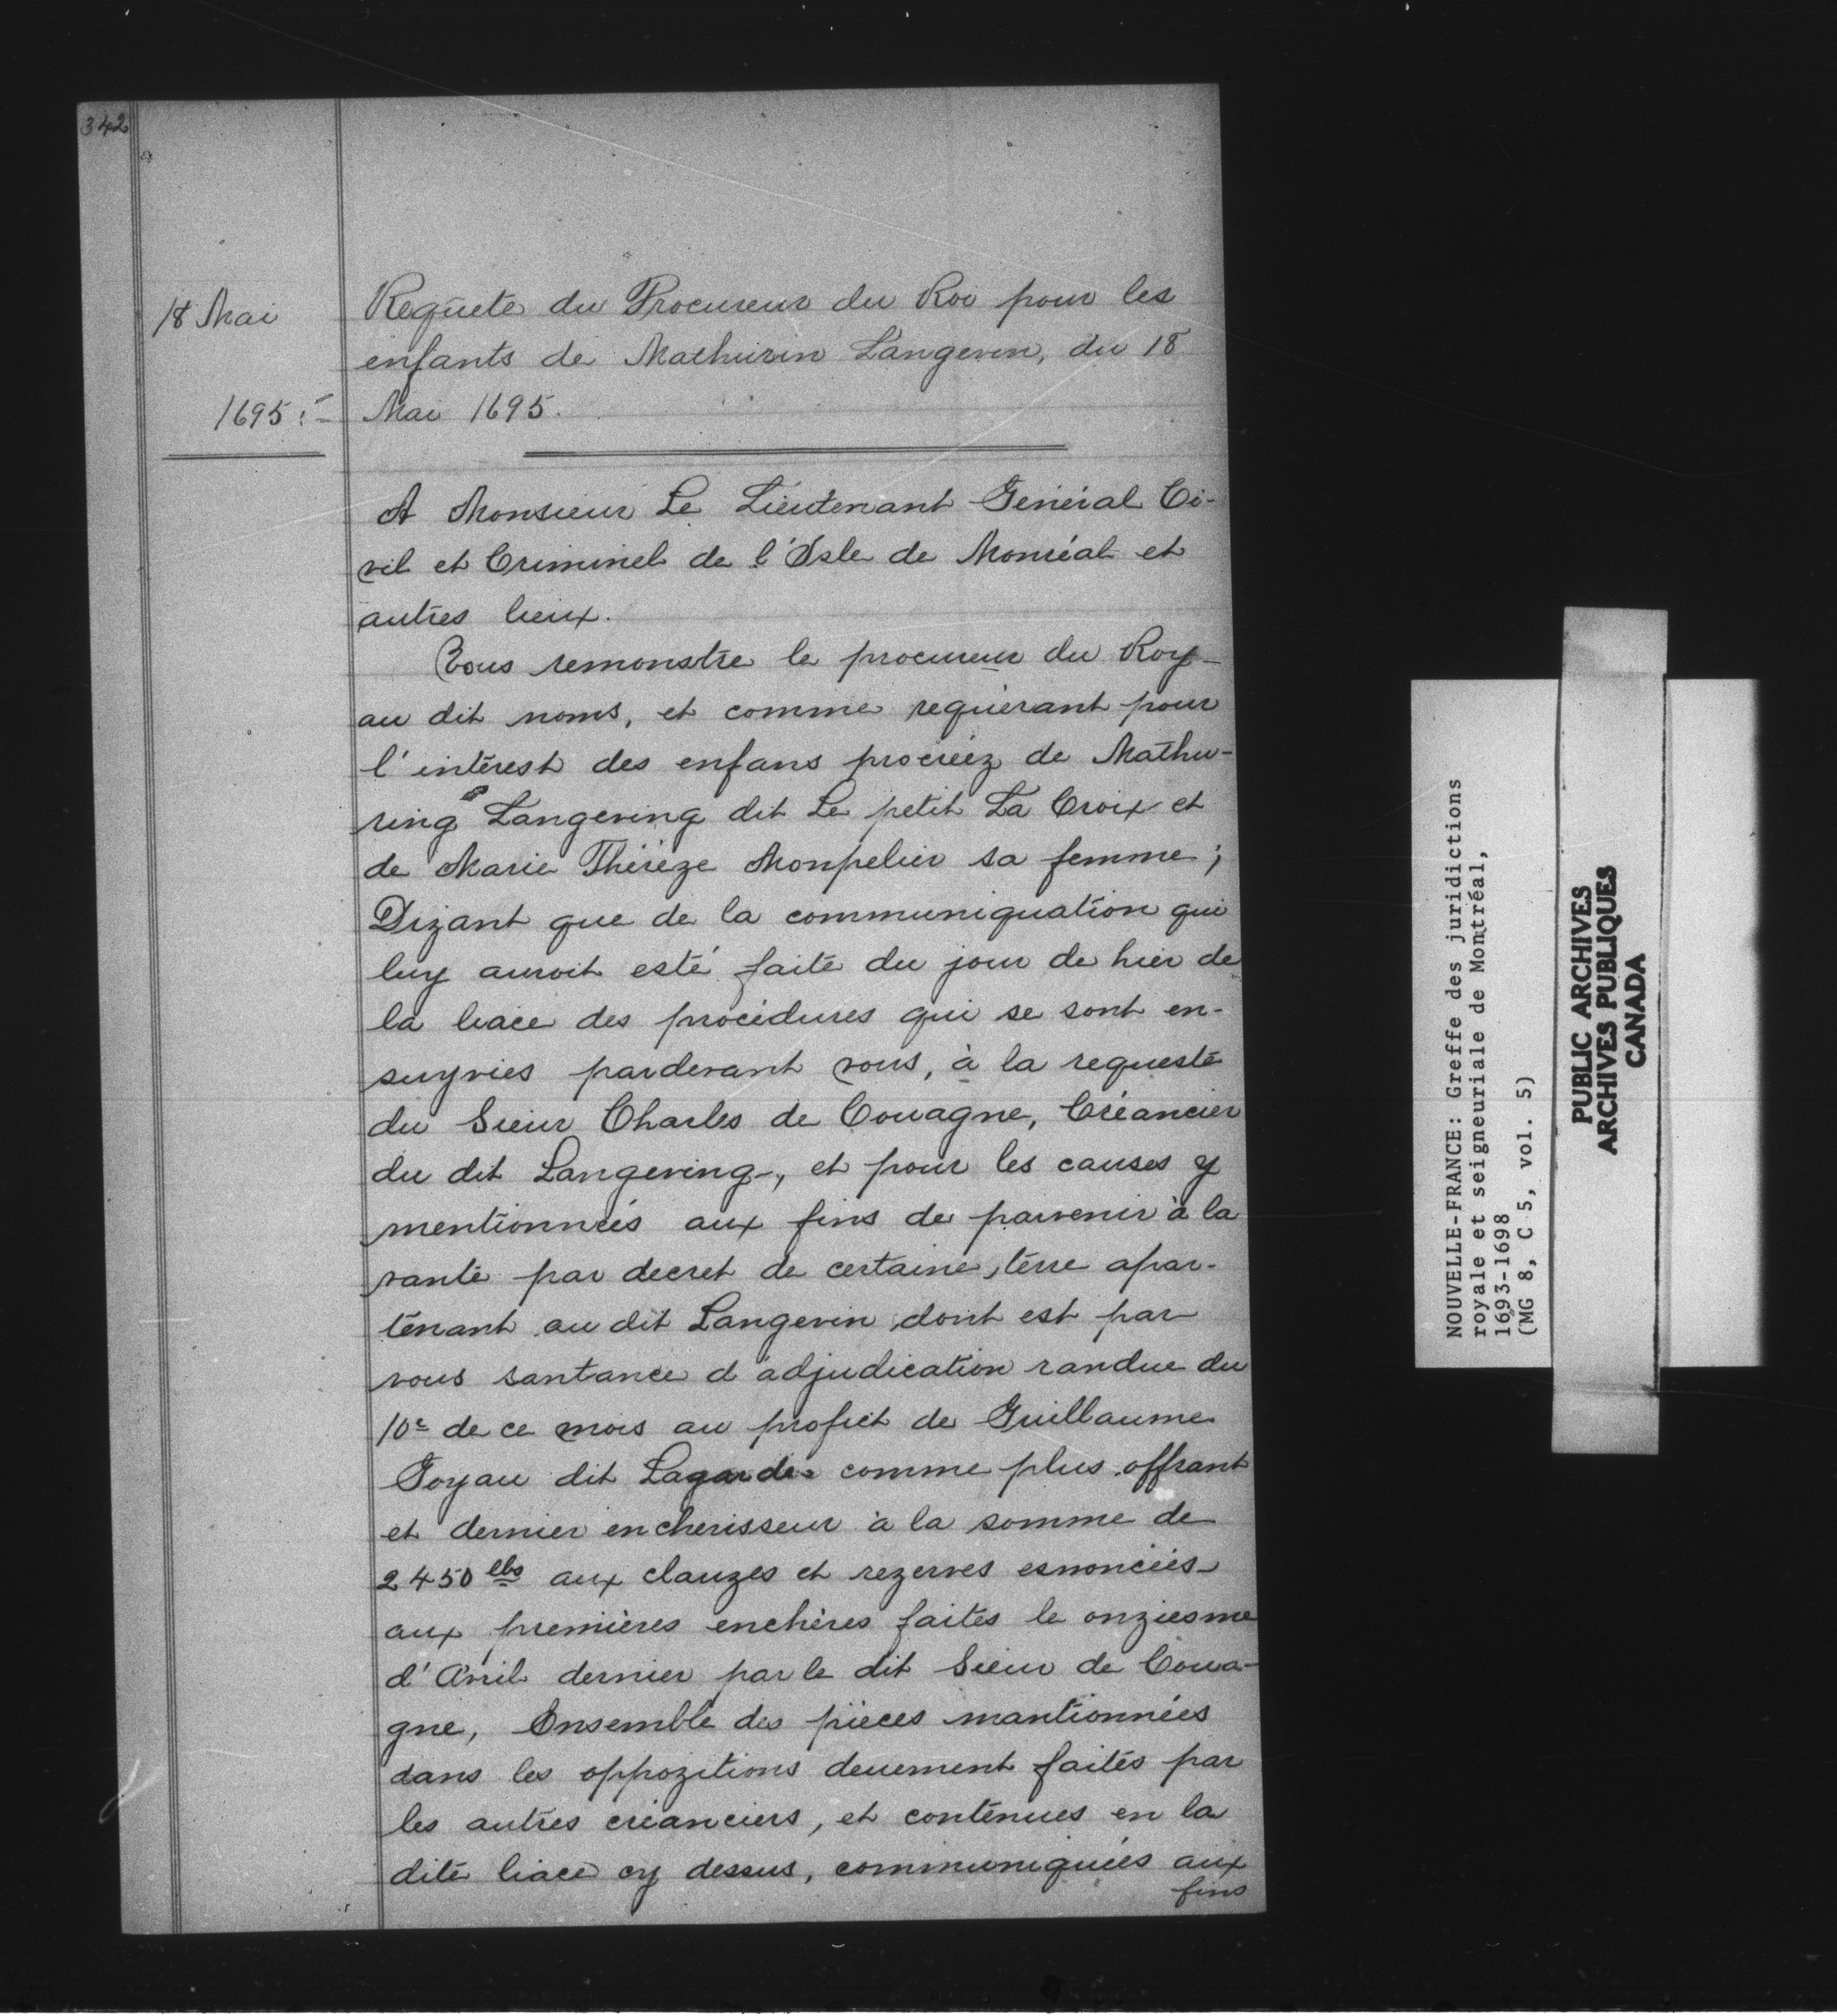 342
18 Mai
1695 :-
Requête du Procureur du Roi pour les
enfants de Mathurin Langevin, du 18
Mai 1695.
A Monsieur Le Lieutenant Général Ci-
vil et Criminel de l'Isle de Monréal et
autres lieux.
Vous remonstre le procureur du Roy
au dit noms, et comme requérant pour
l'intérest des enfans procréez de Mathu-
ring Langeving dit Le petit La Croix et
de Marie Thérèze Monpelier sa femme;
Dizant que de la communiquation qui
luy auroit esté faite du jour de hier de
la liace des procédures qui se sont en-
suyvies pardevant vous, à la requeste
du Sieur Charles de Couagne, Créancier
du dit Langeving, et pour les causes y
mentionnées aux fins de parvenir à la
vante par decret de certaine terre apar-
tenant au dit Langevin dont est par
vous santance d'adjudication randue du
10e de ce mois au profict de Guillaume
Goyau dit Lagarde comme plus offrant
et dernier encherisseur à la somme de
2450 lbs aux clauzes et rezerves esnoncées
aux premières enchères faites le onziesme
d'Avril dernier par le dit Sieur de Coua-
gne, Ensemble des pièces mantionnées
dans les oppozitions deuement faites par
les autres créanciers, et contenues en la
dite liace cy dessus, communiquées aux
fins
NOUVELLE-FRANCE: Greffe des juridictions
royale et seigneuriale de Montréal,
1693-1698
(MG 8, C 5, vol. 5)
PUBLIC ARCHIVES
ARCHIVES PUBLIQUES
CANADA